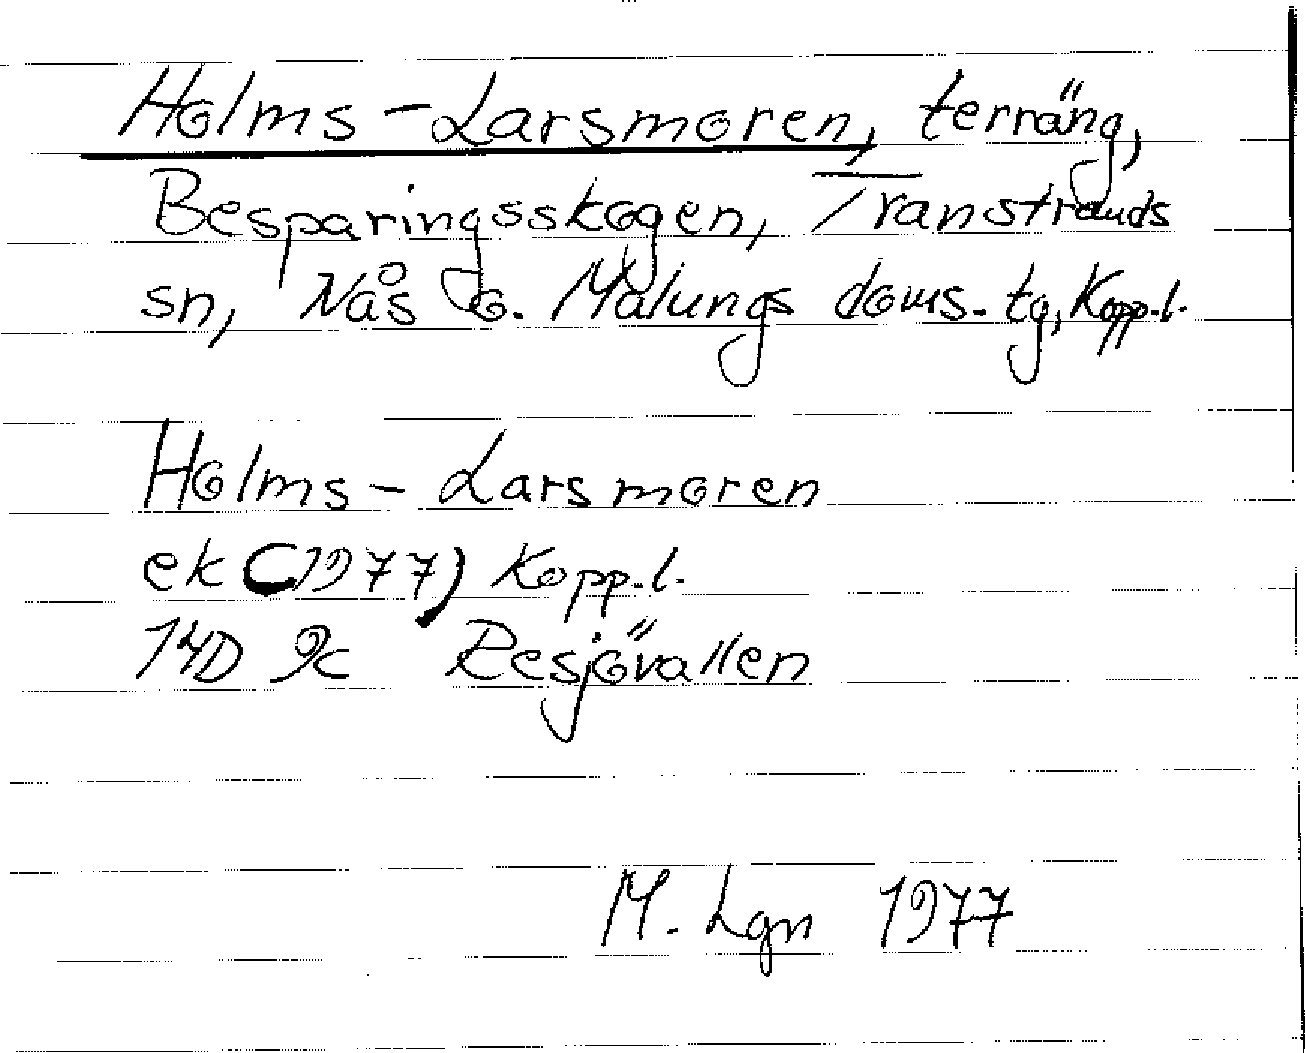 Holms-Larsmoren, terräng,
Besparingsskogen, Transtrands
sn, Nås o. Malungs doms. tg, Kopp.l.
Holms-Larsmoren
ek (1977) Kopp.l.
14D 9c Resjövallen
M. Lgn 1977